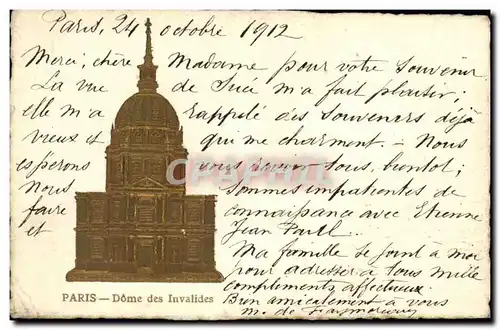 Paris, 24 octobre 1912
Merci, chère Madame pour votre souvenir
La vue de Sucé m'a fait plaisir;
elle m'a rappelé des souvenirs déjà
vieux et qui me charment. - Nous
espérons vous revoir tous, bientôt;
Nous sommes impatientes de
faire connaissance avec Etienne
et Jean Paul..
Ma famille se joint à moi
pour adresser à tous mille
compliments affectueux.
Bien amicalement à vous
M. de
PARIS — Dôme des Invalides
CPARAMA